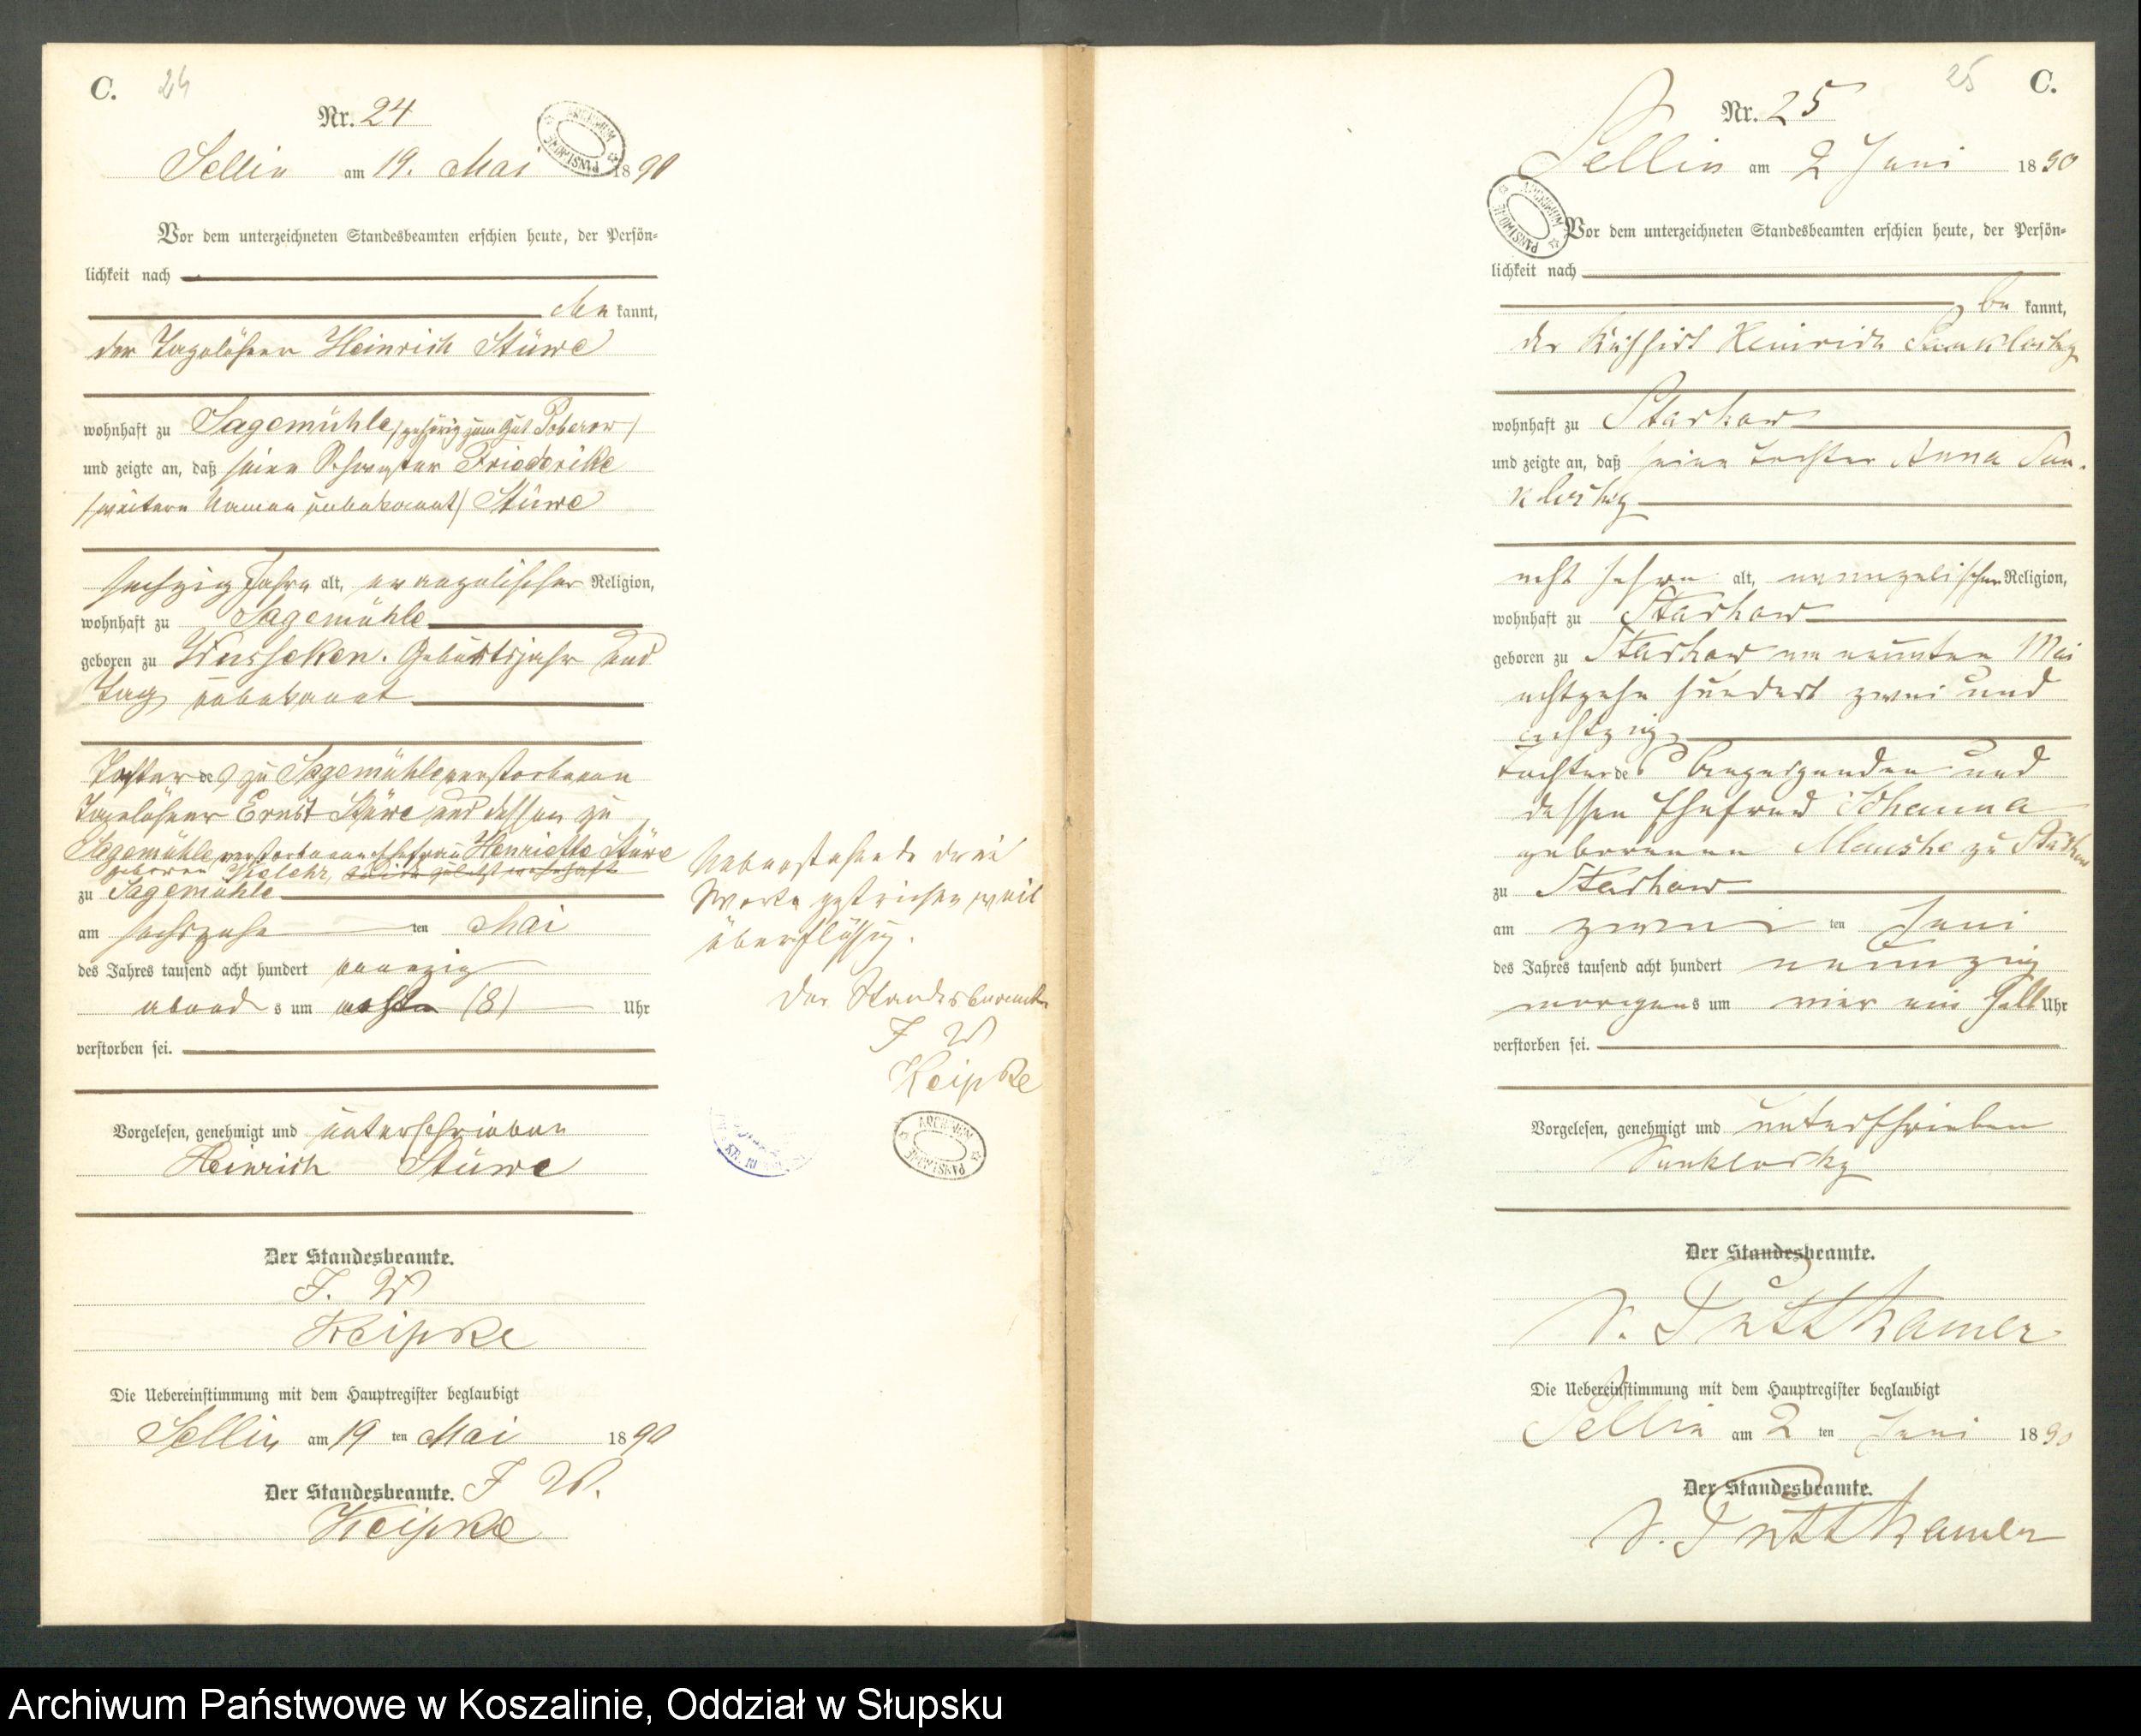 C. 24
Nr. 24
ARCHIWUM PAŃSTWOWE
Sellin am 19. Mai 1890
Vor dem unterzeichneten Standesbeamten erschien heute, der Persön-
lichkeit nach
be kannt,
der Tagelöhner Heinrich Stüwe
wohnhaft zu Sagemühle, (gehörig zum Gut Poberow)
und zeigte an, daß seine Schwester Friederike
(weitere Namen unbekannt) Stüwe
sechzig Jahre alt, evangelischer Religion,
wohnhaft zu Sagemühle
geboren zu Wusseken. Geburtsjahr und
Tag unbekannt
Tochter des zu Sagemühle verstorbenen
Tagelöhner Ernst Stüwe und dessen zu
Sagemühle verstorbenen Ehefrau Henriette Stüwe
geboren beide zuletzt wohnhaft
zu Sagemühle
am sechszehn ten Mai
des Jahres tausend acht hundert neunzig
abend s um achte (8) Uhr
verstorben sei.
Vorgelesen, genehmigt und unterschrieben
Heinrich Stüwe
Der Standesbeamte.
J. V
Keipke
Die Uebereinstimmung mit dem Hauptregister beglaubigt
Sellin am 19 ten Mai 1890
Der Standesbeamte. J V.
Keipke
Nebenstehende drei
Worte gestrichen weil
überflüssig.
Der Standesbeamte
J V
Keipke
ARCHIWUM PAŃSTWOWE
25 C.
Nr. 25
Sellin am 2 Juni 1890
ARCHIWUM PAŃSTWOWE
Vor dem unterzeichneten Standesbeamten erschien heute, der Persön-
lichkeit nach
be kannt,
der Kuhhirt Heinrich Sanklosky
wohnhaft zu Starkow
und zeigte an, daß seine Tochter Anna San-
klosky
acht Jahre alt, evangelischer Religion,
wohnhaft zu Starkow
geboren zu Starkow am neunten Mai
achtzehn hundert zwei und
achtzig
Tochter des Anzeigenden und
dessen Ehefrau Johanna
geborenen Manske zu Starkow
zu Starkow
am zwei ten Juni
des Jahres tausend acht hundert neunzig
morgens um vier ein halb Uhr
verstorben sei.
Vorgelesen, genehmigt und unterschrieben
Sanklosky
Der Standesbeamte.
v. Puttkamer
Die Uebereinstimmung mit dem Hauptregister beglaubigt
Sellin am 2 ten Juni 1890
Der Standesbeamte.
v. Puttkamer
Archiwum Państwowe w Koszalinie, Oddział w Słupsku